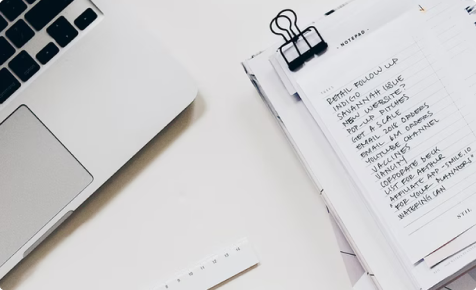 NOTEPAD
RETAIL FOLLOW UP
INDIGO
SAVANNAH ISSUE
NEW WEBSITE?
POP-UP PITCHES
GET A SCALE
EMAIL 2018 ORDERS
EMAIL 6M ORDERS
YOUTUBE CHANNEL
VACCINES
VANCITY
CORPORATE DECK
LIST FOR ARTHUR
AFFILIATE APP - SMILE.IO
"FOR YOUR PLANNERS"
WATERING CAN